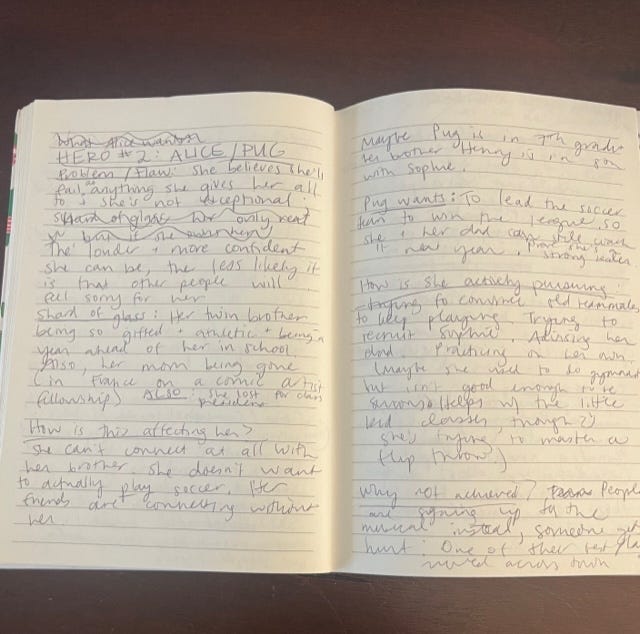 What Alice wants:
HERO #2: ALICE/PUG
Problem/Flaw: She believes she'll
fail at anything she gives her all
to & she's not exceptional.
Shard of glass: her only real
The louder + more confident
she can be, the less likely it
is that other people will
feel sorry for her
Shard of glass: Her twin brother
being so gifted + athletic + being a
year ahead of her in school.
Also, her mom being gone
(in France on a comic artist
fellowship) ALSO: she lost for class
president
How is this affecting her?
She can't connect at all with
her brother. She doesn't want
to actually play soccer. Her
friends are connecting without
her.
Maybe Pug is in 7th grade
her brother Henry is in 8th
with Sophie.
Pug wants: To lead the soccer
team to win the league so
she + her dad can still coach
it next year. Prove she's a
strong leader
How is she actively pursuing:
Trying to convince old teammates
to keep playing. Trying to
recruit Sophie. Advising her
dad. Practicing on her own.
(Maybe she used to do gymnast
but isn't good enough
(Helps w/ the little
kid classes, though?)
She's trying to master a
flip throw.)
Why not achieved? People
are signing up for the
musical instead, someone get
hurt: One of their best pla
moved across town